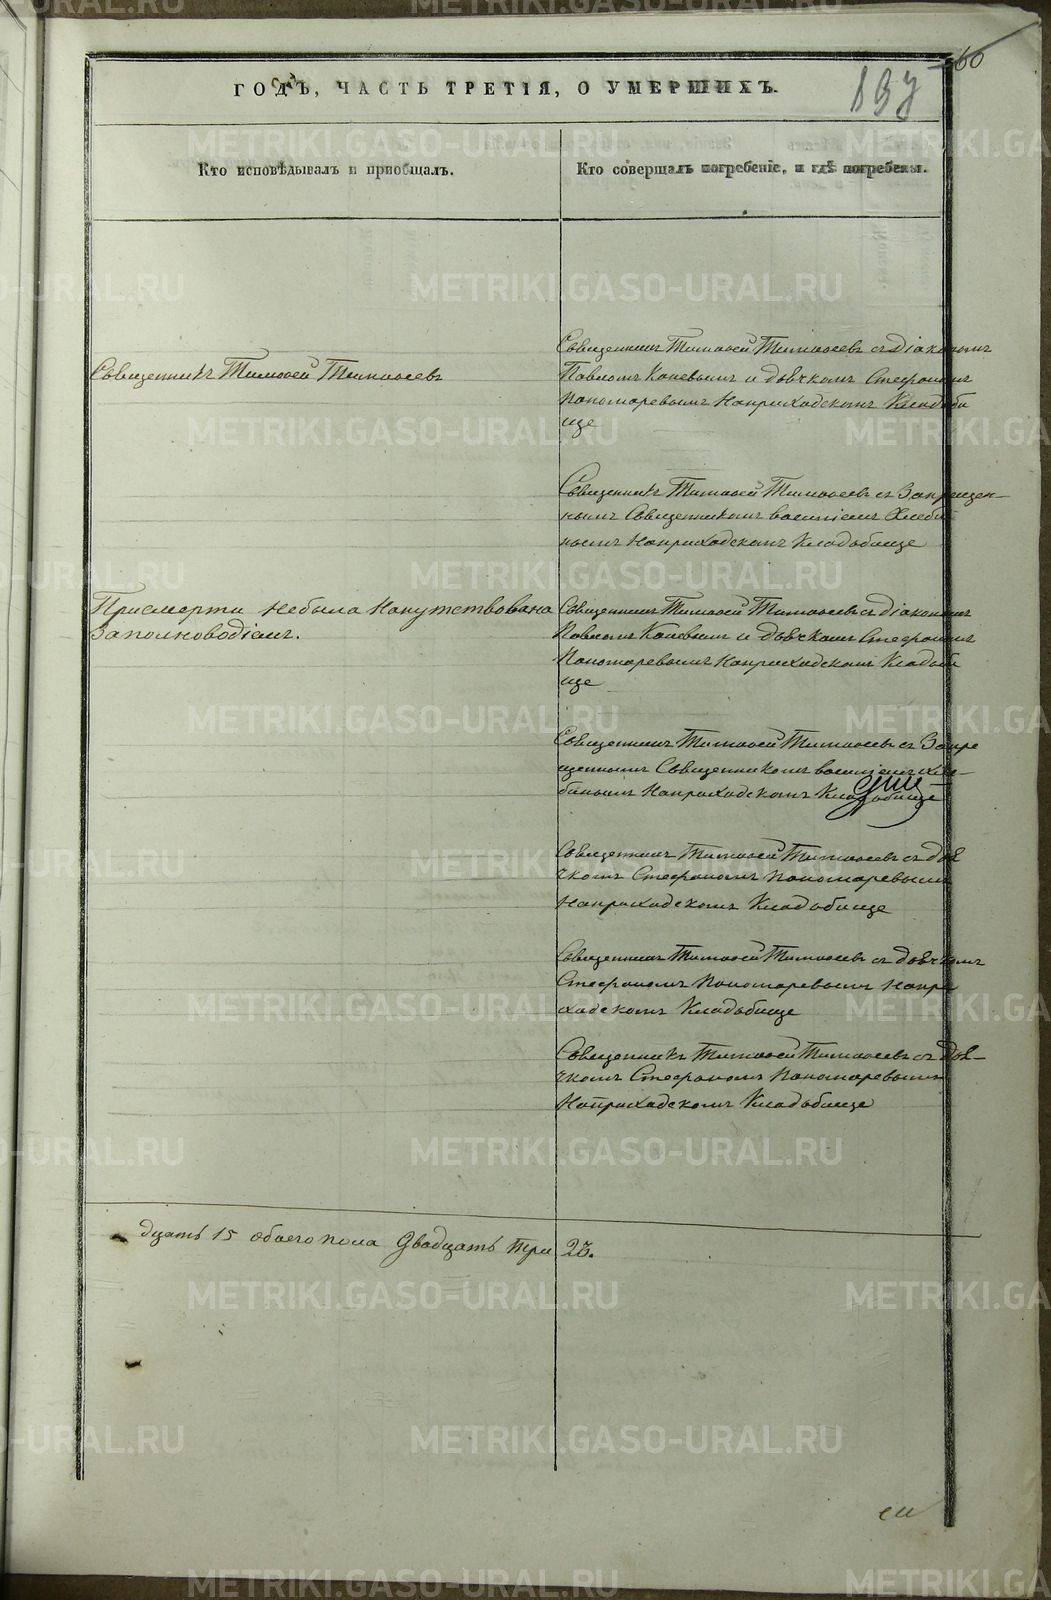 60
137
ГОДЪ, ЧАСТЬ ТРЕТІЯ, О УМЕРШИХЪ.
Кто исповѣдывалъ и пріобщалъ.
Кто совершалъ погребеніе, и гдѣ погребены.
Священникъ Тимоѳей Тимоѳеевъ
Священникъ Тимоѳей Тимоѳеевъ съ Діакономъ
Павломъ Каневымъ и дьячкомъ Стефаномъ
Пономаревымъ Наприходскомъ Кладьби
ще
Священникъ Тимоѳей Тимоѳеевъ съ Запрещен-
нымъ Священникомъ василіемъ Хлеба
нымъ Наприходскомъ Кладьбище
Присмерти небыла Напутствована
Заполноводіемъ.
Священникъ Тимоѳей Тимоѳеевъ съ Діакономъ
Павломъ Каневымъ и Дьячкомъ Стефаномъ
Пономаревымъ Наприходскомъ Кладьби
ще
Священникъ Тимоѳей Тимоѳеевъ съ Запре
щеннымъ Священникомъ василіемъ Хле-
банымъ Наприходскомъ Кладьбище
Священникъ Тимоѳей Тимоѳеевъ съ Дья
чкомъ Стефаномъ Пономаревымъ
Наприходскомъ Кладьбище
Священникъ Тимоѳей Тимоѳеевъ съ Дьячкомъ
Стефаномъ Пономаревымъ Напри
ходскомъ Кладьбище
Священникъ Тимоѳей Тимоѳеевъ съ Дья-
чкомъ Стефаномъ Пономаревымъ
Наприходскомъ Кладьбище
дцать 15 обоего пола Двадцать три 23.
METRIKI.GASO-URAL.RU